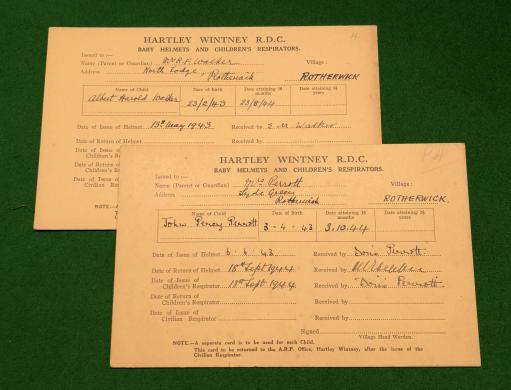 HARTLEY WINTNEY R.D.C.
BABY HELMETS AND CHILDREN'S RESPIRATORS.
Issued to :—
Name (Parent or Guardian) R.F. Walker
Village :
Address North Lodge, Rotherwick
ROTHERWICK
Name of Child
Date of Birth
Date attaining 18 months
Date attaining 4½ years
Albert Harold Walker
23/2/43
23/8/44
Date of Issue of Helmet 13th May 1943
Received by E M Walker
Date of Return of Helmet
HARTLEY WINTNEY R.D.C.
BABY HELMETS AND CHILDREN'S RESPIRATORS.
Issued to :—
Name (Parent or Guardian) Mrs Perrott
Village :
Address Lyde Green
Rotherwick
ROTHERWICK.
Name of Child
Date of Birth
Date attaining 18 months
Date attaining 4½ years
John Percy Perrott
3-4-43
3.10.44
Date of Issue of Helmet 6.6.43.
Received by Doris Perrott.
Date of Return of Helmet 18th Sept 1944
Received by
Date of Issue of Children's Respirator 18th Sept 1944
Received by Doris Perrott
Date of Return of Children's Respirator
Received by
Date of Issue of Civilian Respirator
Received by
Signed
Village Head Warden.
NOTE.—A separate card is to be used for each Child.
This card is to be returned to the A.R.P. Office, Hartley Wintney, after the issue of the
Civilian Respirator.